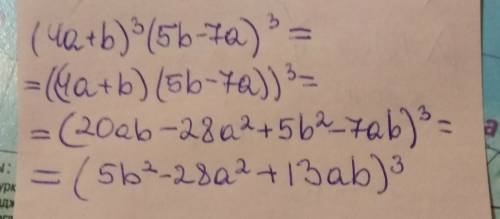 (4a+b)³(5b-7a)³=
=((4a+b)(5b-7a))³=
=(20ab-28a²+5b²-7ab)³=
=(5b²-28a²+13ab)³